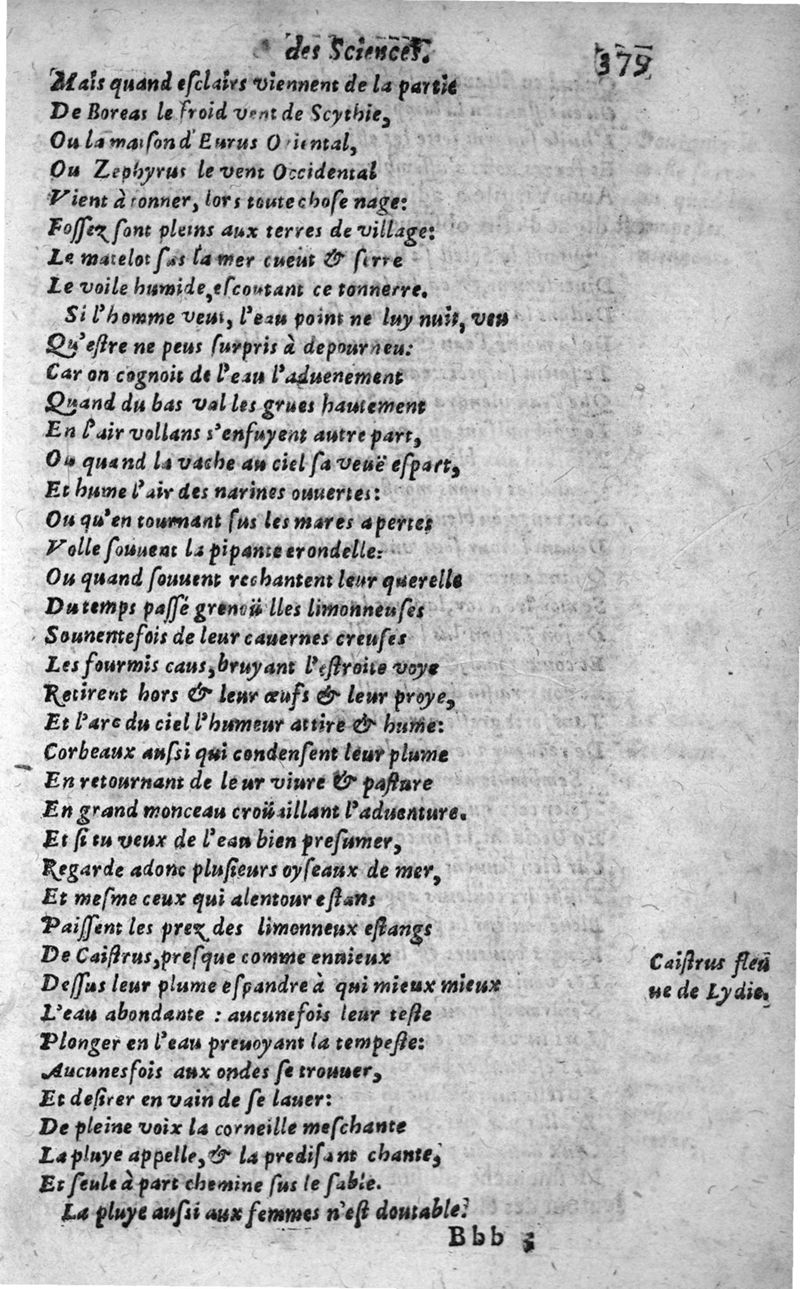 des Sciences.
379
Mais quand esclairs viennent de la partie
De Boreas le froid vent de Scythie,
Ou la maison d'Eurus Oriental,
Ou Zephyrus le vent Occidental
Vient à tonner, lors toute chose nage:
Fossez sont pleins aux terres de village:
Le matelot sus la mer cueut & serre
Le voile humide, escoutant ce tonnerre.
Si l'homme veut, l'eau point ne luy nuit, veu
Qu'estre ne peus surpris à depourueu:
Car on cognoit de l'eau l'aduenement
Quand du bas val les grues hautement
En l'air vollans s'enfuyent autre part,
Ou quand la vache au ciel sa veuë espart,
Et hume l'air des narines ouuertes:
Ou qu'en tournant sus les mares apertes
Volle souuent la pipante erondelle:
Ou quand souuent rechantent leur querelle
Du temps passé grenoüilles limonneuses
Souuentefois de leur cauernes creuses
Les fourmis caus, bruyant l'estroite voye
Retirent hors & leur œufs & leur proye,
Et l'arc du ciel l'humeur attire & hume:
Corbeaux aussi qui condensent leur plume
En retournant de leur viure & pasture
En grand monceau croüaillant l'aduenture.
Et si tu veux de l'eau bien presumer,
Regarde adonc plusieurs oyseaux de mer,
Et mesme ceux qui alentour estans
Paissent les prez des limonneux estangs
De Caistrus, presque comme enuieux
Dessus leur plume espandre à qui mieux mieux
L'eau abondante : aucunefois leur teste
Plonger en l'eau preuoyant la tempeste:
Aucunesfois aux ondes se trouuer,
Et desirer en vain de se lauer:
De pleine voix la corneille meschante
La pluye appelle, & la predisant chante,
Et seule à part chemine sus le sable.
La pluye aussi aux femmes n'est doutable:
Caistrus fleu
ue de Lydie.
Bbb 3